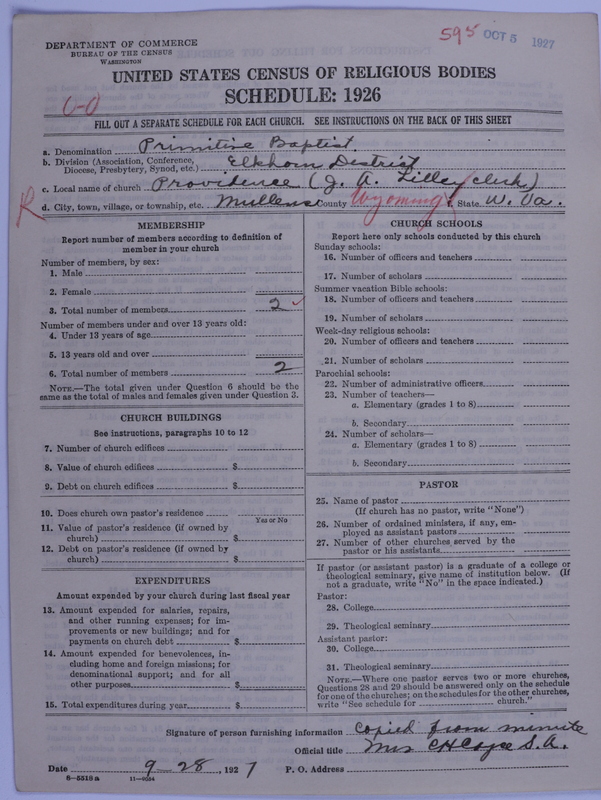 595 OCT 5 1927
DEPARTMENT OF COMMERCE
BUREAU OF THE CENSUS
WASHINGTON
UNITED STATES CENSUS OF RELIGIOUS BODIES
SCHEDULE: 1926
0-0
FILL OUT A SEPARATE SCHEDULE FOR EACH CHURCH. SEE INSTRUCTIONS ON THE BACK OF THIS SHEET
a. Denomination Primitive Baptist
b. Division (Association, Conference, Diocese, Presbytery, Synod, etc.) Elkhorn District
c. Local name of church Providence (J. A. Lilley clerk)
R d. City, town, village, or township, etc. Mullens County Wyoming, State W. Va.
MEMBERSHIP
Report number of members according to definition of
member in your church
Number of members, by sex:
1. Male
2. Female
3. Total number of members 2 ✓
Number of members under and over 13 years old:
4. Under 13 years of age
5. 13 years old and over
6. Total number of members 2
NOTE.—The total given under Question 6 should be the
same as the total of males and females given under Question 3.
CHURCH BUILDINGS
See instructions, paragraphs 10 to 12
7. Number of church edifices
8. Value of church edifices $
9. Debt on church edifices $
10. Does church own pastor's residence
Yes or No
11. Value of pastor's residence (if owned by
church) $
12. Debt on pastor's residence (if owned by
church) $
EXPENDITURES
Amount expended by your church during last fiscal year
13. Amount expended for salaries, repairs,
and other running expenses; for im-
provements or new buildings; and for
payments on church debt $
14. Amount expended for benevolences, in-
cluding home and foreign missions; for
denominational support; and for all
other purposes $
15. Total expenditures during year $
CHURCH SCHOOLS
Report here only schools conducted by this church
Sunday schools:
16. Number of officers and teachers
17. Number of scholars
Summer vacation Bible schools:
18. Number of officers and teachers
19. Number of scholars
Week-day religious schools:
20. Number of officers and teachers
21. Number of scholars
Parochial schools:
22. Number of administrative officers
23. Number of teachers—
a. Elementary (grades 1 to 8)
b. Secondary
24. Number of scholars—
a. Elementary (grades 1 to 8)
b. Secondary
PASTOR
25. Name of pastor
(If church has no pastor, write "None")
26. Number of ordained ministers, if any, em-
ployed as assistant pastors
27. Number of other churches served by the
pastor or his assistants
If pastor (or assistant pastor) is a graduate of a college or
theological seminary, give name of institution below. (If
not a graduate, write "No" in the space indicated.)
Pastor:
28. College
29. Theological seminary
Assistant pastor:
30. College
31. Theological seminary
NOTE.—Where one pastor serves two or more churches,
Questions 28 and 29 should be answered only on the schedule
for one of the churches; on the schedules for the other churches,
write "See schedule for church."
Signature of person furnishing information Copied from minute
Official title Mrs S. A.
Date 9-28, 1927 P. O. Address
8-5518a 11-9554